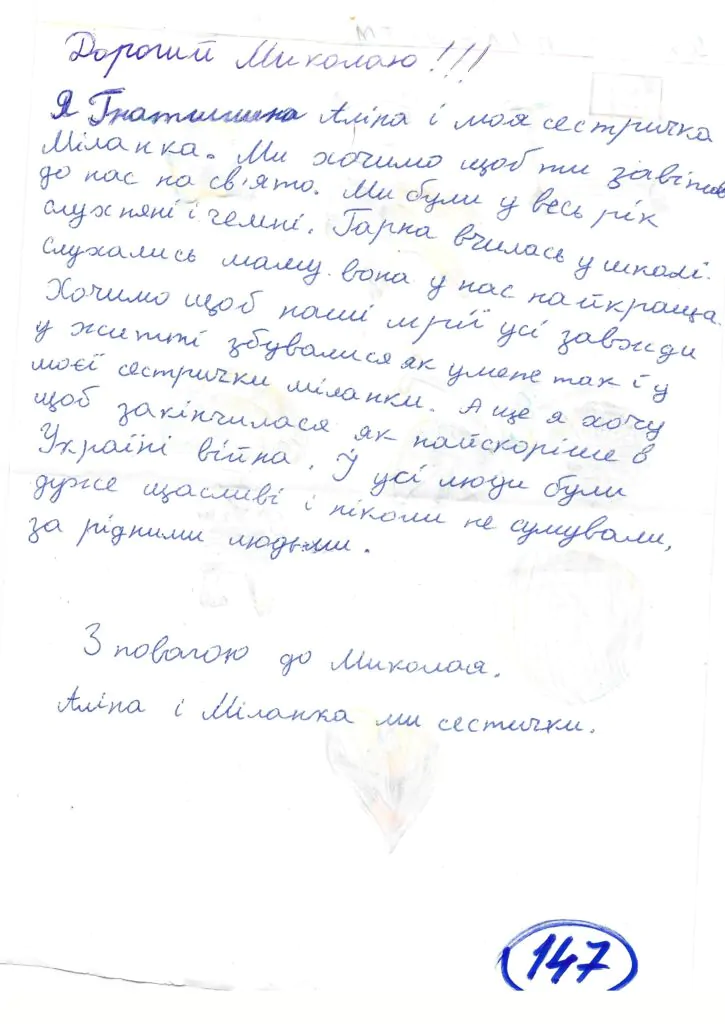 Дорогий Миколаю!!!
Я Гнатишина Аліна і моя сестричка
Міланка. Ми хочимо щоб ти завітав
до нас на св'ято. Ми були у весь рік
слухняні і чемні. Гарна вчилась у школі.
слухались маму. вона у нас найкраща.
Хочимо щоб наші мрії усі завжди
у житті збувалися як умене так і у
моєї сестрички міланки. А ще я хочу
щоб закінчилася як найскоріше в
Україні війна. У усі люди були
дуже щасливі і ніколи не сумували,
за рідними людьми.
З повагою до Миколая.
Аліна і Міланка ми сестички.
147